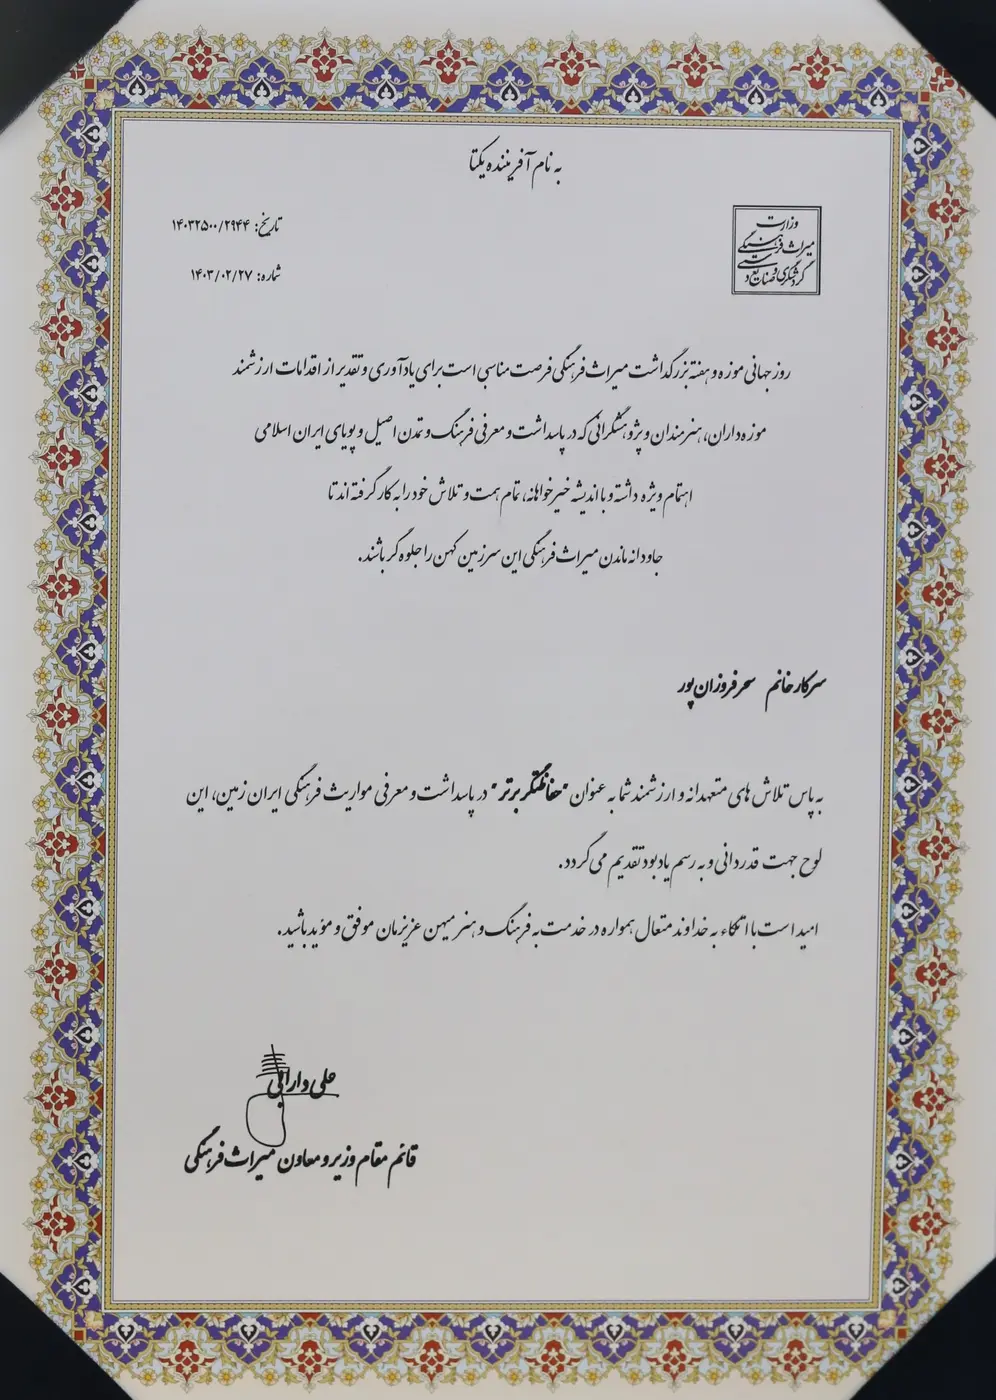 به نام آفریننده یکتا
وزارت
میراث فرهنگی
گردشگری و صنایع دستی
تاریخ: ۱۴۰۳۲۵۰۰/۲۹۴۴
شماره: ۱۴۰۳/۰۲/۲۷
روز جهانی موزه و هفته بزرگداشت میراث فرهنگی فرصت مناسبی است برای یادآوری و تقدیر از اقدامات ارزشمند
موزه داران، هنرمندان و پژوهشگرانی که در پاسداشت و معرفی فرهنگ و تمدن اصیل و پویای ایران اسلامی
اهتمام ویژه داشته و با اندیشه خیرخواهانه، تمام همت و تلاش خود را به کار گرفته اند تا
جاودانه ماندن میراث فرهنگی این سرزمین کهن را جلوه گر باشند.
سرکار خانم سحر فروزان پور
به پاس تلاش های متعهدانه و ارزشمند شما به عنوان "حفاظتگر برتر" در پاسداشت و معرفی مواریث فرهنگی ایران زمین، این
لوح جهت قدردانی و به رسم یادبود تقدیم می گردد.
امید است با اتکاء به خداوند متعال همواره در خدمت به فرهنگ و هنر میهن عزیزمان موفق و مؤید باشید.
علی دارابی
قائم مقام وزیر و معاون میراث فرهنگی